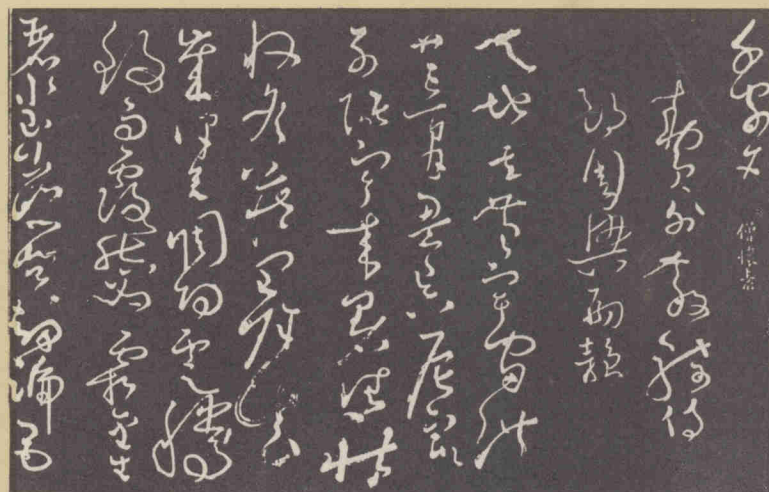 千字文 僧懷素
敕員外散騎侍
郎周興嗣韻
天地玄黃宇宙洪
荒日月盈昃辰宿
列張寒來暑往秋
收冬藏閏餘成
歲律呂調陽雲騰
致雨露結為霜金生
麗水玉出崑岡劍號巨